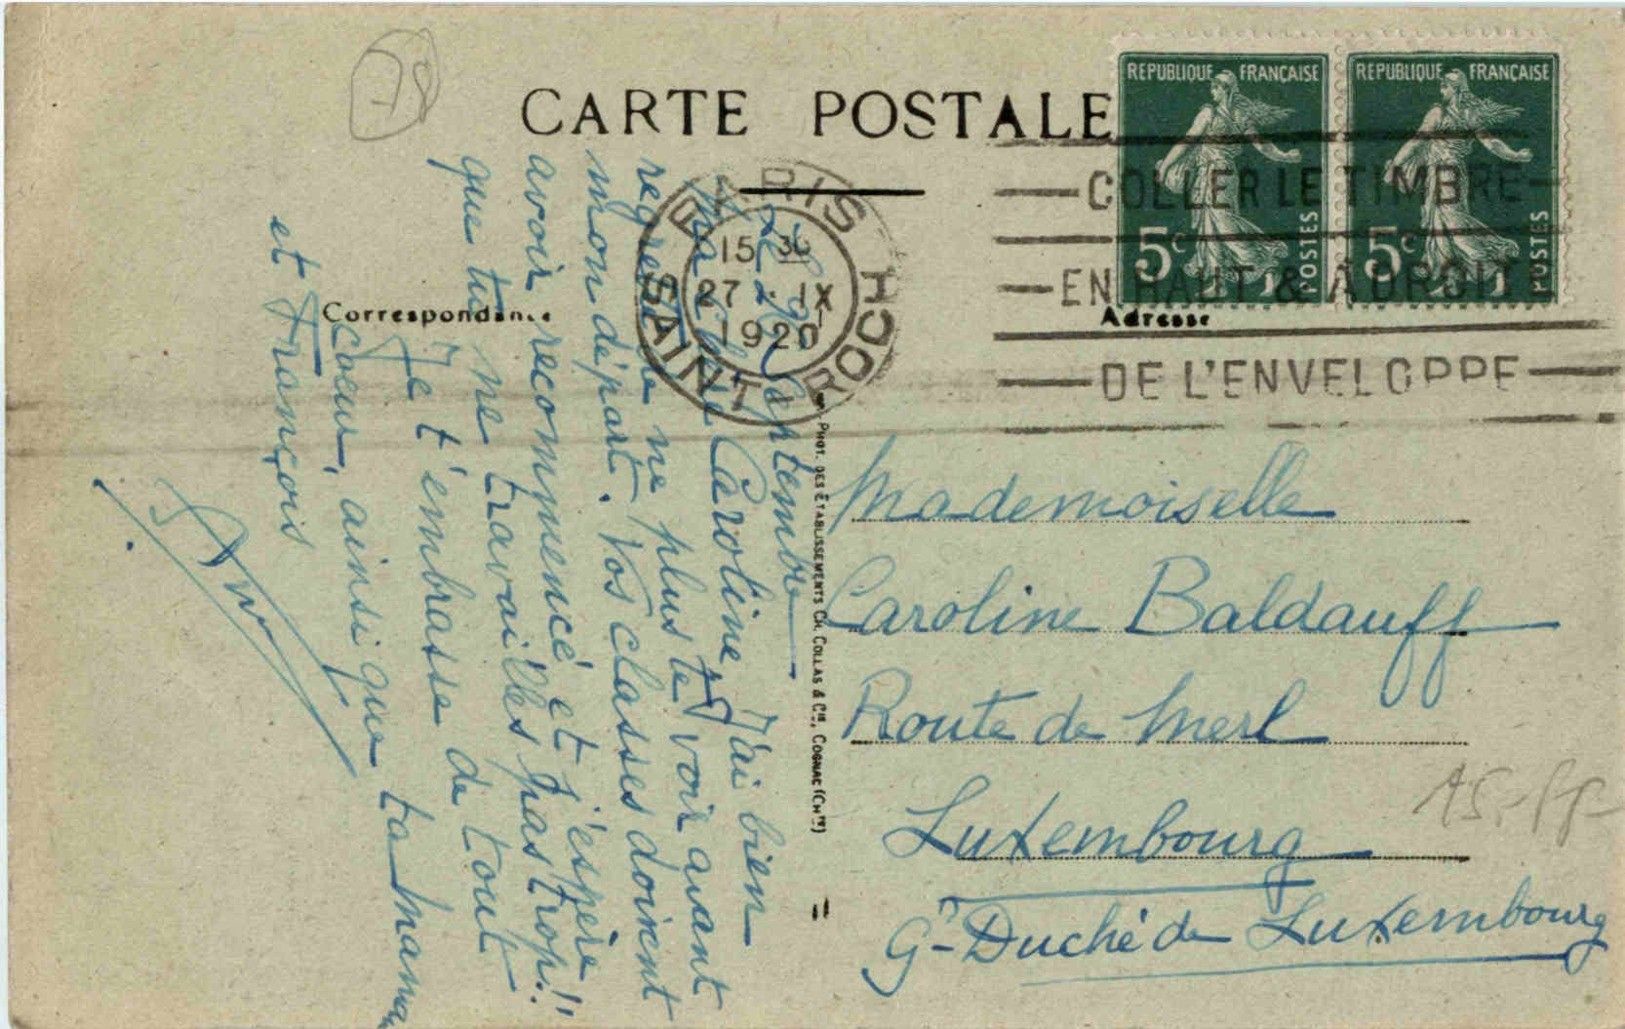 CARTE POSTALE
REPUBLIQUE FRANÇAISE
5c
POSTES
REPUBLIQUE FRANÇAISE
5c
POSTES
PARIS
15 30
27 · IX
1920
SAINT ROCH
COLLER LE TIMBRE
EN HAUT & À DROITE
DE L'ENVELOPPE
Correspondance
Adresse
Le 27 Septembre
Ma chère Caroline, J'ai bien
regretté ne plus te voir avant
mon départ. Vos classes doivent
avoir recommencé et j'espère
que tu ne travailles pas trop!!
Je t'embrasse de tout
coeur, ainsi que ta maman
et François
PHOT. DES ÉTABLISSEMENTS CH. COLLAS & Cie, COGNAC (Chte)
Mademoiselle
Caroline Baldauff
Route de Merl
Luxembourg
Gd Duché de Luxembourg